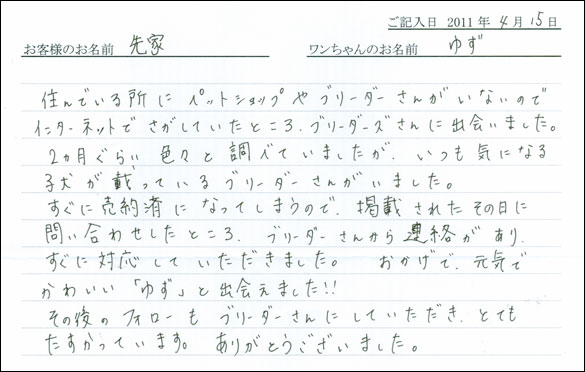 ご記入日 2011年4月15日
お客様のお名前 先家 ワンちゃんのお名前 ゆず
住んでいる所にペットショップやブリーダーさんがいないので
インターネットでさがしていたところ、ブリーダーズさんに出会いました。
2ヵ月ぐらい色々と調べていましたが、いつも気になる
子犬が載っているブリーダーさんがいました。
すぐに売約済になってしまうので、掲載されたその日に
問い合わせしたところ、ブリーダーさんから連絡があり、
すぐに対応していただきました。 おかげで、元気で
かわいい「ゆず」と出会えました!!
その後のフォローもブリーダーさんにしていただき、とても
たすかっています。 ありがとうございました。